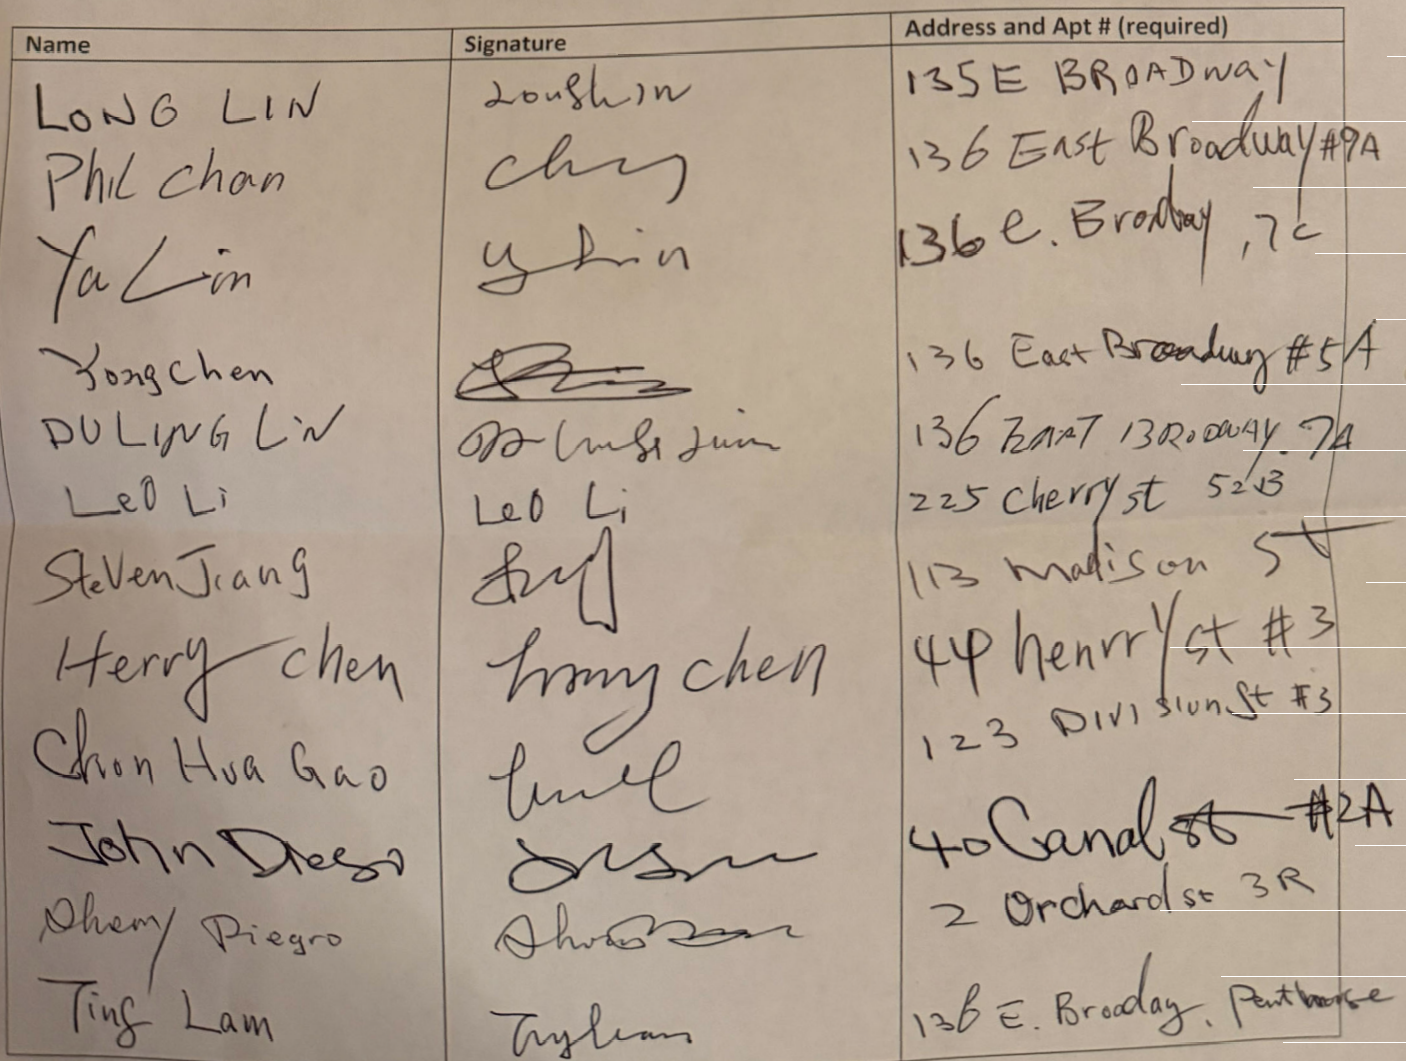 Name Signature Address and Apt # (required)
LONG LIN 135 E BROADWAY
Phil Chan 136 East Broadway #9A
Ya Lin y Lin 136 E. Broadway, 7C
Yong chen 136 East Broadway #5A
DULING LIN 136 EAST BROADWAY. 7A
Leo Li Leo Li 225 Cherry st 52B
Steven Jiang 113 Madison ST
Herry chen chen 44 henrry st #3
Chon Hua Gao 123 Division St #3
John Diego 40 Canal st #2A
Piegro 2 Orchard st 3R
Ting Lam 136 E. Broaday, Penthouse